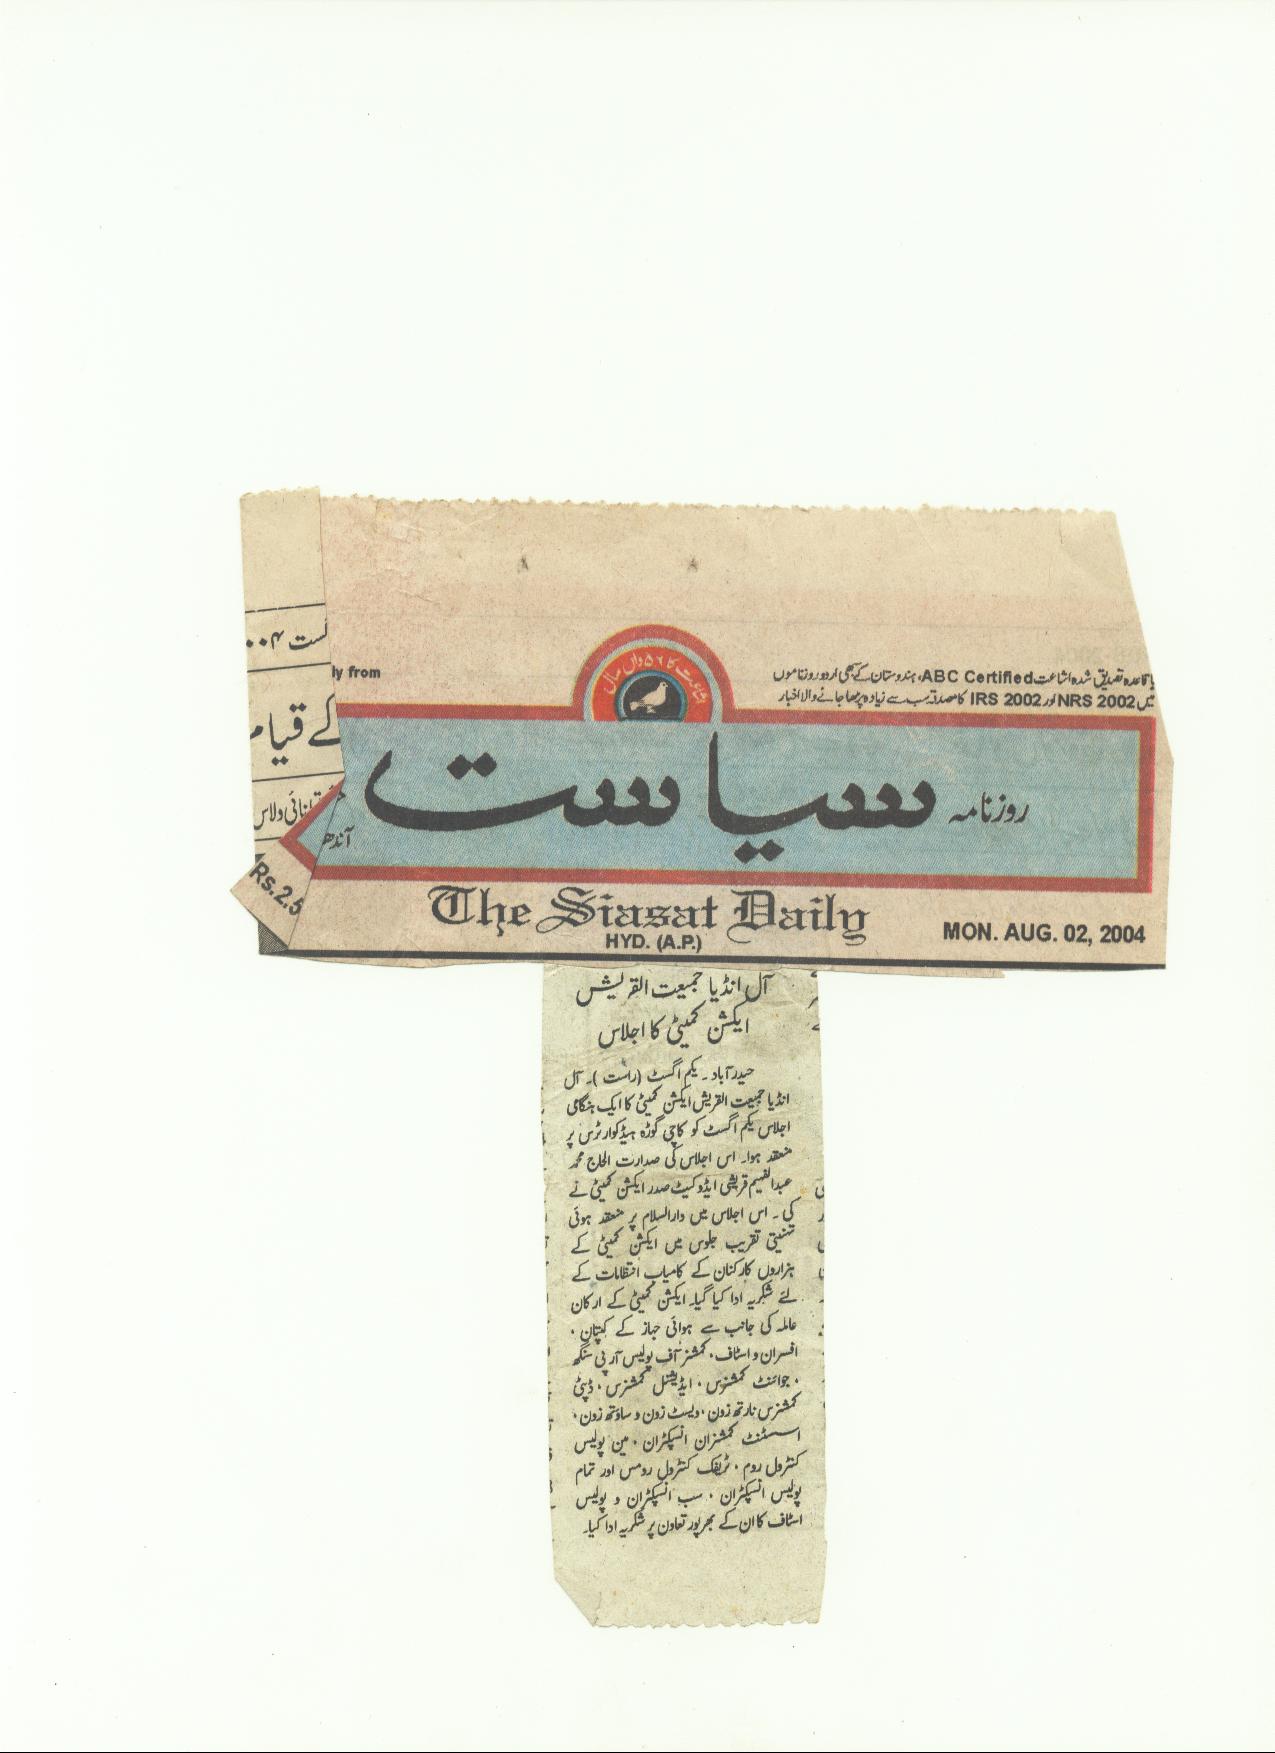 لست ۰۰۴
کے قیام
توانائی ولاس
Rs.2.5
ly from
اشاعت کا ۵۶ واں سال
باقاعدہ تصدیق شدہ اشاعت ABC Certified، ہندوستان کے سبھی اردو روزناموں
میں NRS 2002 اور IRS 2002 کا مصدقہ سب سے زیادہ پڑھا جانے والا اخبار
روزنامہ سیاست
آندھ
The Siasat Daily
HYD. (A.P.)
MON. AUG. 02, 2004
آل انڈیا جمیعت القریش
ایکشن کمیٹی کا اجلاس
حیدرآباد ۔ یکم اگست (راست)۔ آل
انڈیا جمیعت القریش ایکشن کمیٹی کا ایک ہنگامی
اجلاس یکم اگست کو کاچی گوڑہ ہیڈکوارٹرس پر
منعقد ہوا۔ اس اجلاس کی صدارت الحاج محمد
عبدالفہیم قریشی ایڈوکیٹ صدر ایکشن کمیٹی نے
کی ۔ اس اجلاس میں دارالسلام پر منعقد ہوئی
تہنیتی تقریب جلوس میں ایکشن کمیٹی کے
ہزاروں کارکنان کے کامیاب انتظامات کے
لئے شکریہ ادا کیا گیا۔ ایکشن کمیٹی کے ارکان
عاملہ کی جانب سے ہوائی جہاز کے کپتان ،
افسران و اسٹاف، کمشنر آف پولیس آر پی سنگھ
، جوائنٹ کمشنرس ، ایڈیشنل کمشنرس ، ڈپٹی
کمشنرس نارتھ زون، ویسٹ زون و ساؤتھ زون،
اسسٹنٹ کمشنران انسپکٹران ، مین پولیس
کنٹرول روم ، ٹریفک کنٹرول رومس اور تمام
پولیس انسپکٹران ، سب انسپکٹران و پولیس
اسٹاف کا ان کے بھرپور تعاون پر شکریہ ادا کیا۔